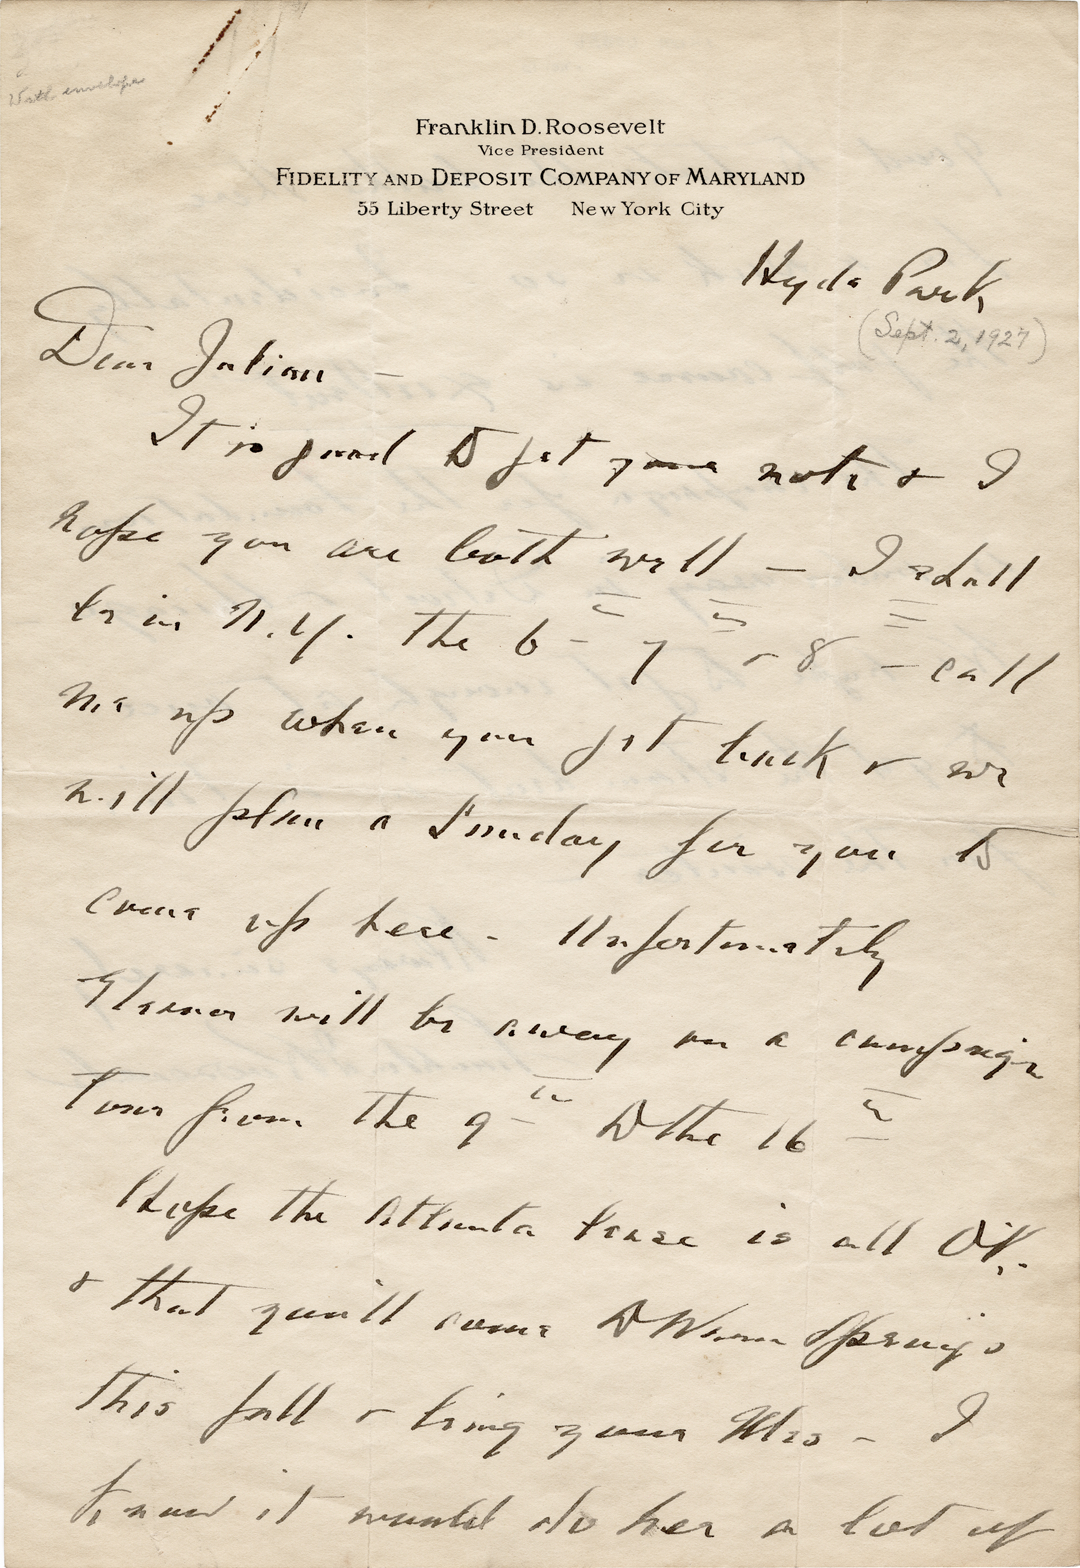 With envelope
Franklin D. Roosevelt
Vice President
FIDELITY AND DEPOSIT COMPANY OF MARYLAND
55 Liberty Street New York City
Hyde Park
(Sept. 2, 1927)
Dear Julian —
It is good to get your note & I
hope you are both well — I shall
be in N.Y. the 6th - 7th & 8th — call
me up when you get back & we
will plan a Sunday for you to
come up here - Unfortunately
Eleanor will be away on a campaign
tour from the 9th to the 16th
Hope the Atlanta lease is all O.K.
& that you'll come to Warm Springs
this fall & bring your Mrs - I
know it would do her a lot of